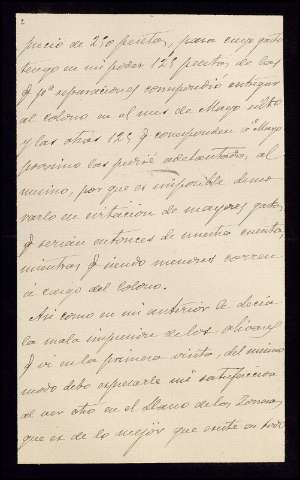 2
precio de 250 pesetas, para cuyo gasto
tengo en mi poder 125 pesetas de las
q pª reparaciones correspondió entregar
al colono en el mes de Mayo
y las otras 125 q corresponden á Mayo
proximo las pediré adelantadas, al
mismo, por que es imposible demo-
rarlo en evitación de mayores gastos
q serian entonces de nuestra cuenta,
mientras q siendo menores corren
á cargo del Colono.
Asi como en mi anterior le decía
la mala impresión de los olivares
q vi en la primera visita, del mismo
modo debo expresarle mi satisfacción
al ver otro en el Llano de las Zorreras,
que es de lo mejor que existe en todo